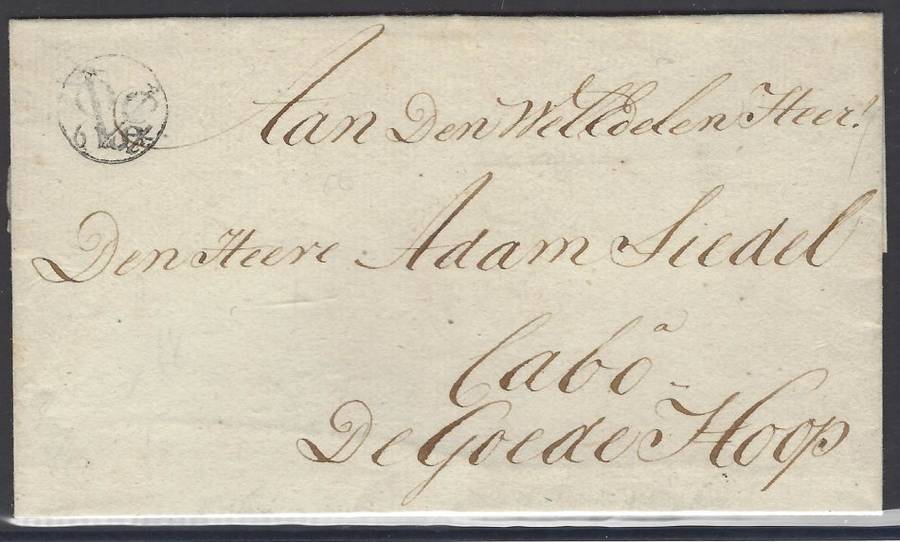 6 ST
Aan Den WelEdelen Heer!
Den Heere Adam Siedel
a
Cabo
De Goede Hoop